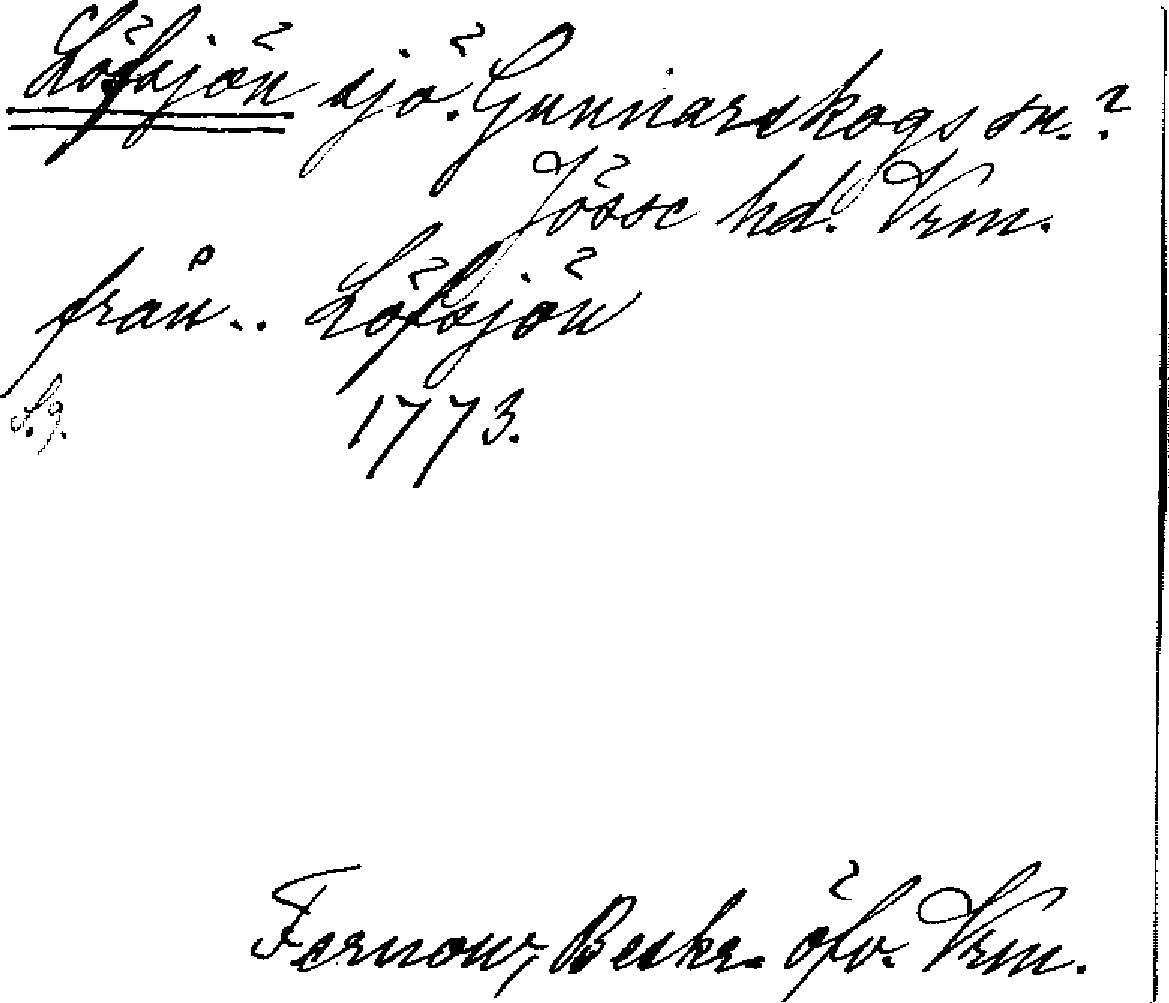 Löfsjön sjö. Gunnarskogs sn.?
Jösse hd. Vrm.
från.. Löfsjön
S. 9. 1773.
Fernow, Beskr. öfv. Vrm.